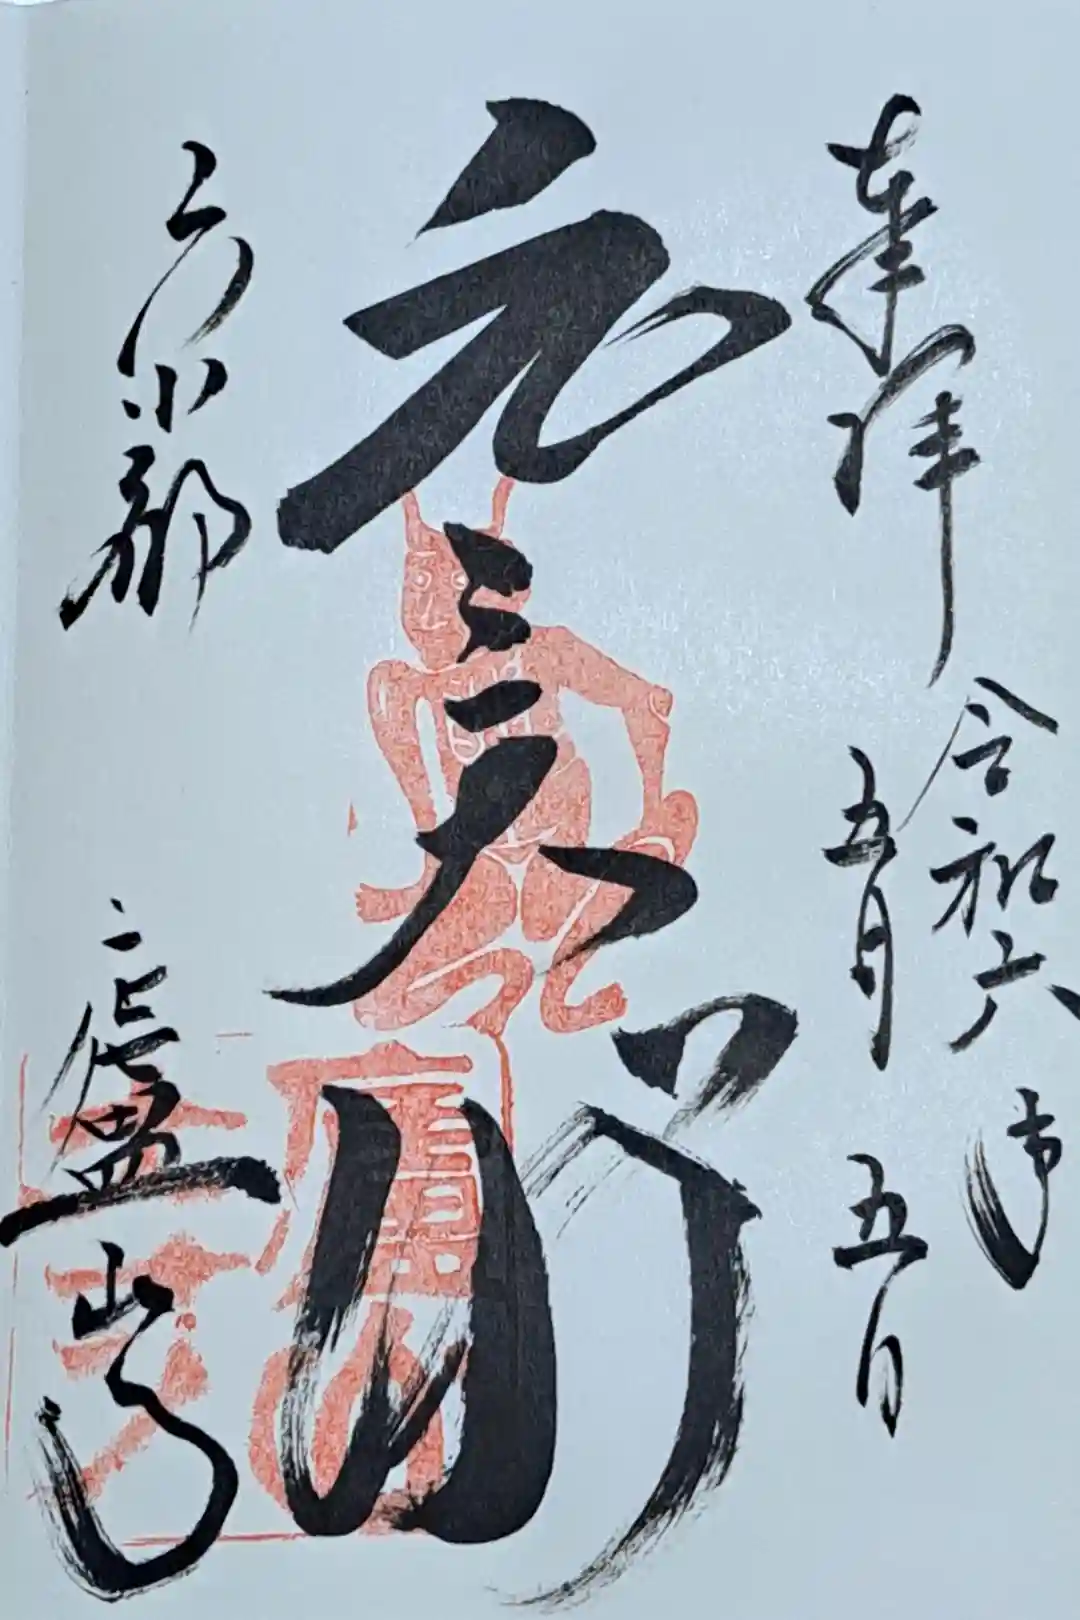 奉拝
令和六年
五月五日
元三大師
京都
廬山寺